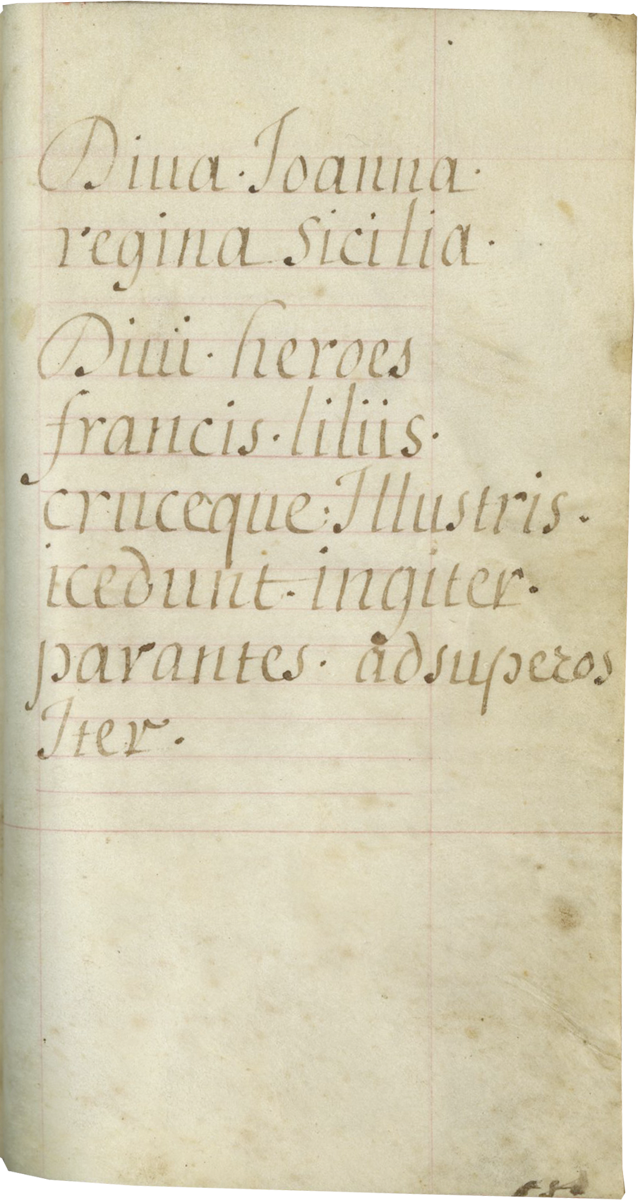 Diua·Ioanna·
regina sicilia·
Diuii·heroes
francis·liliis·
cruceque:Illustris·
icedunt·ingiter·
parantes· adsuperos
Iter·